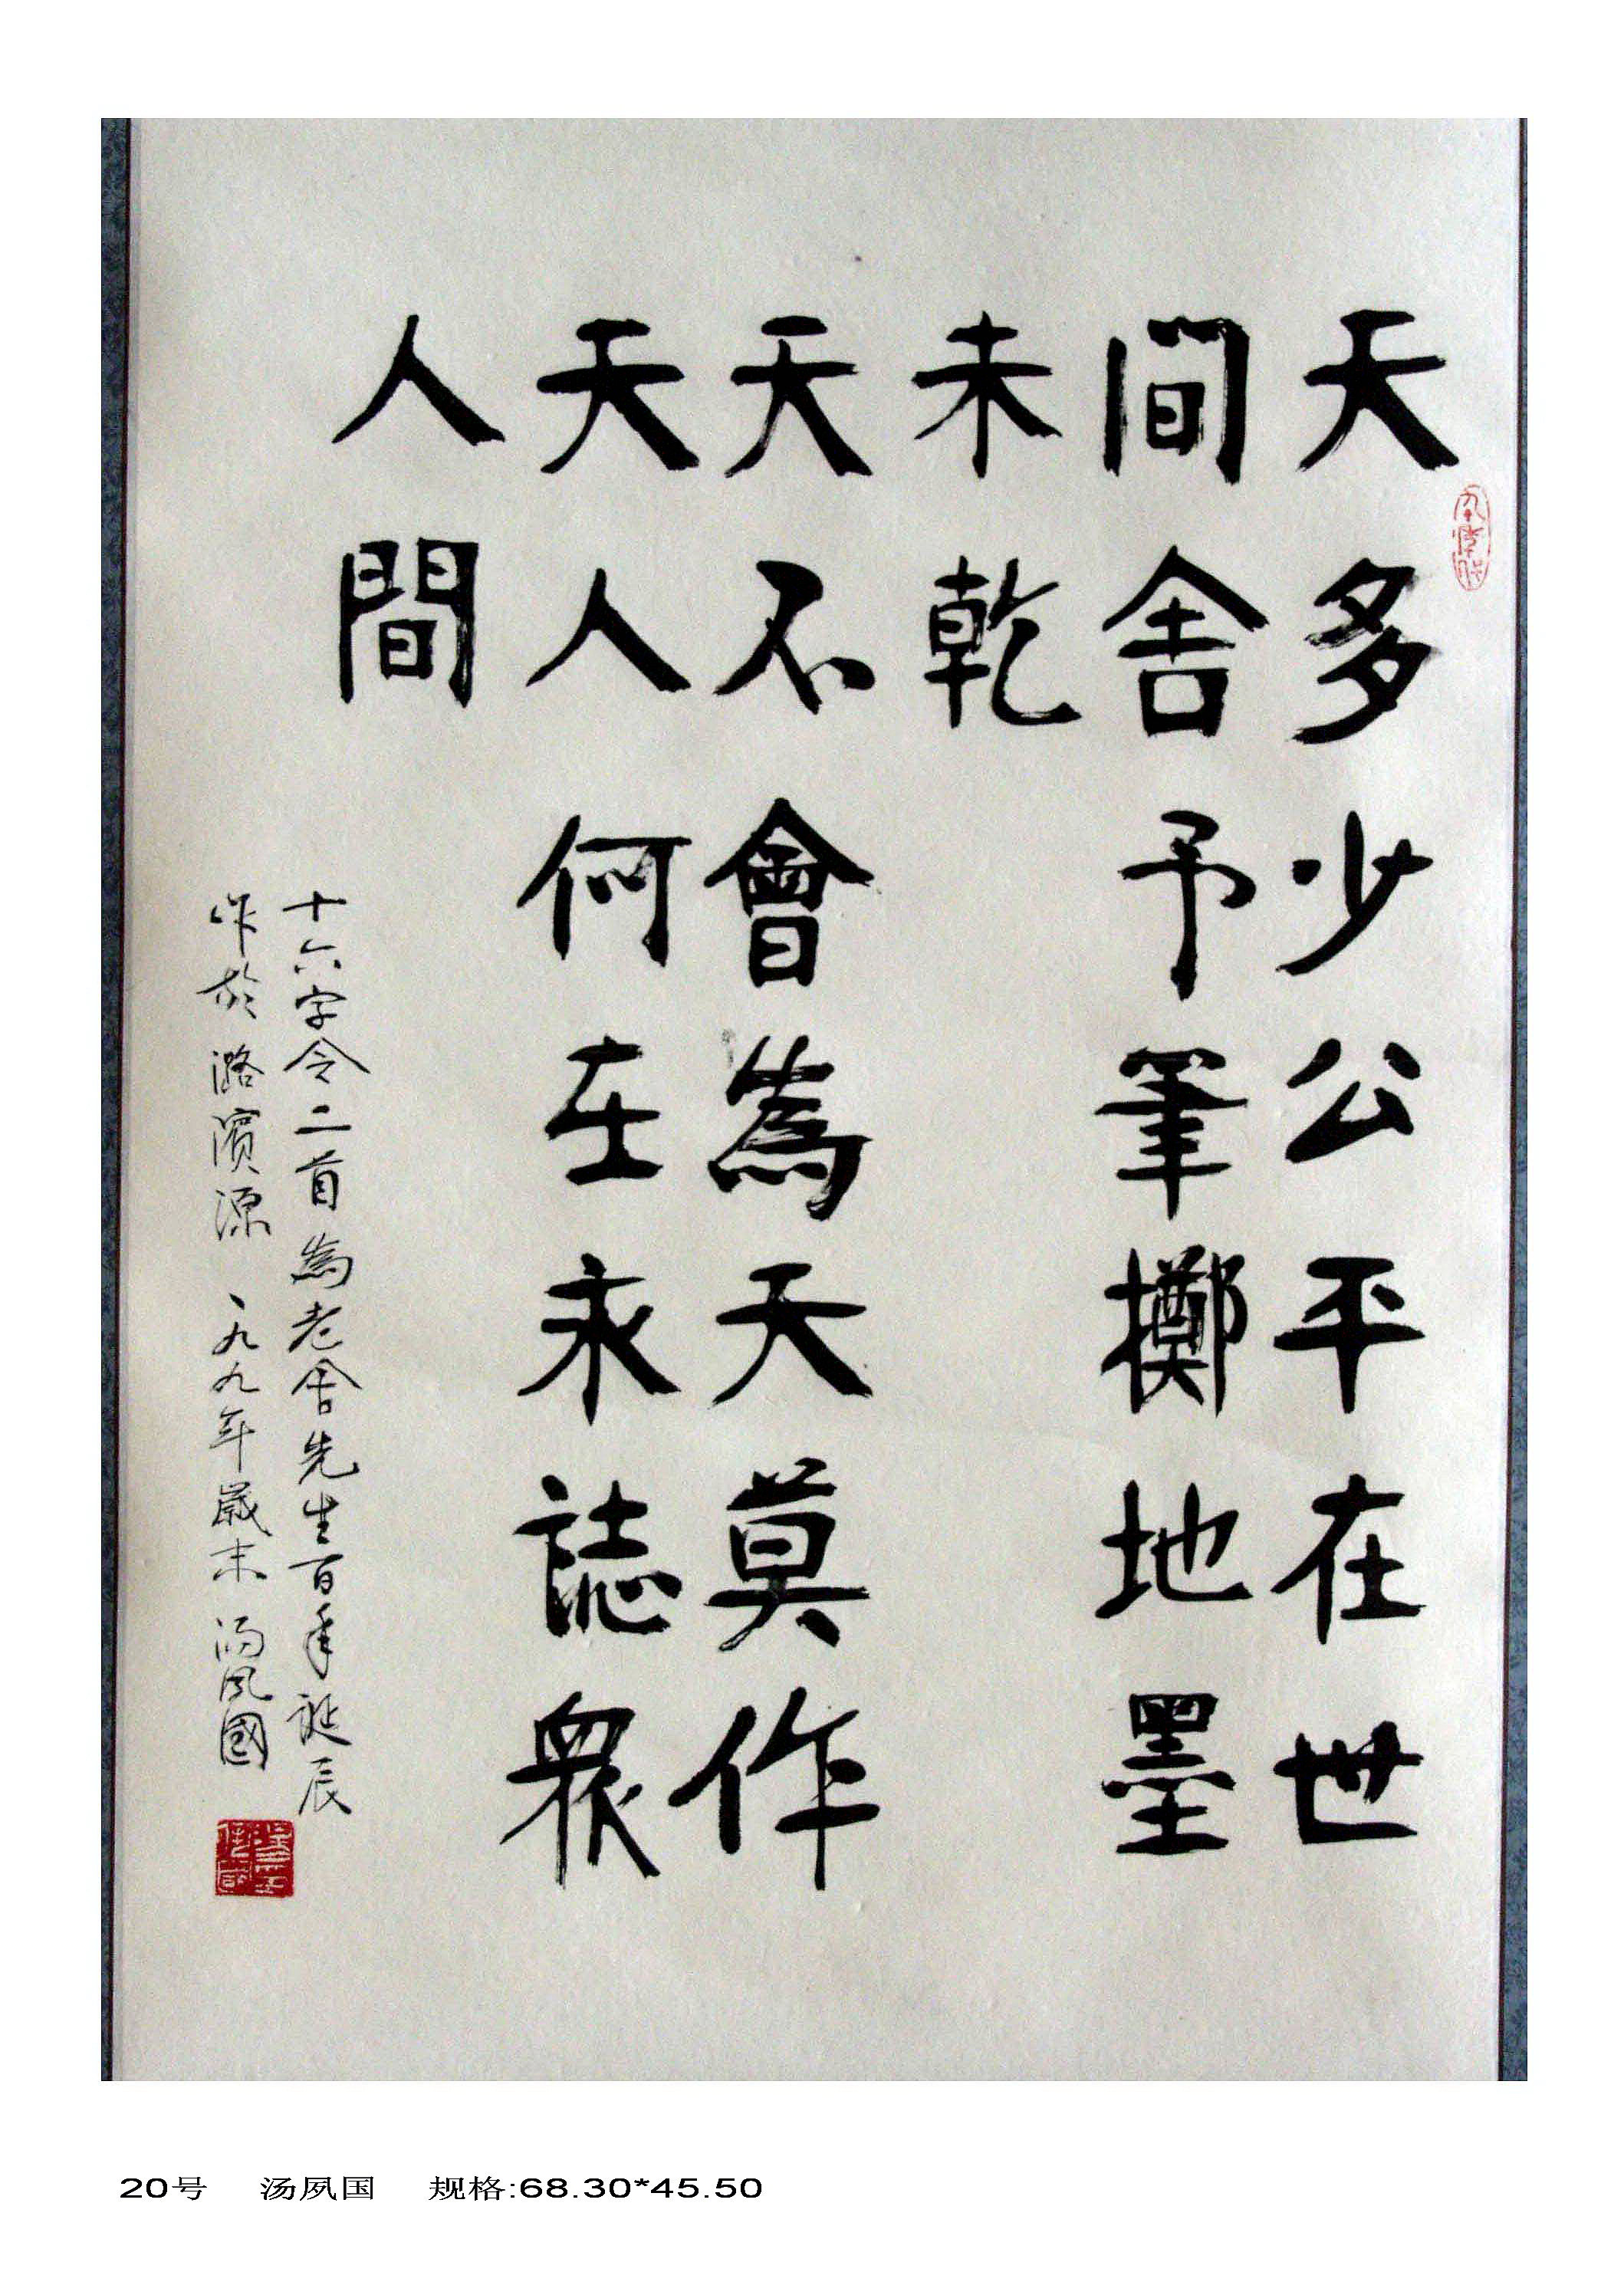 天多少公平在世
間舍予筆擲地墨
未乾
天不會為天莫作
天人何在永誌眾
人間
十六字令二首為老舍先生百年誕辰
作於潞濱源 一九九年歲末 湯夙國
20号 汤夙国 规格:68.30*45.50